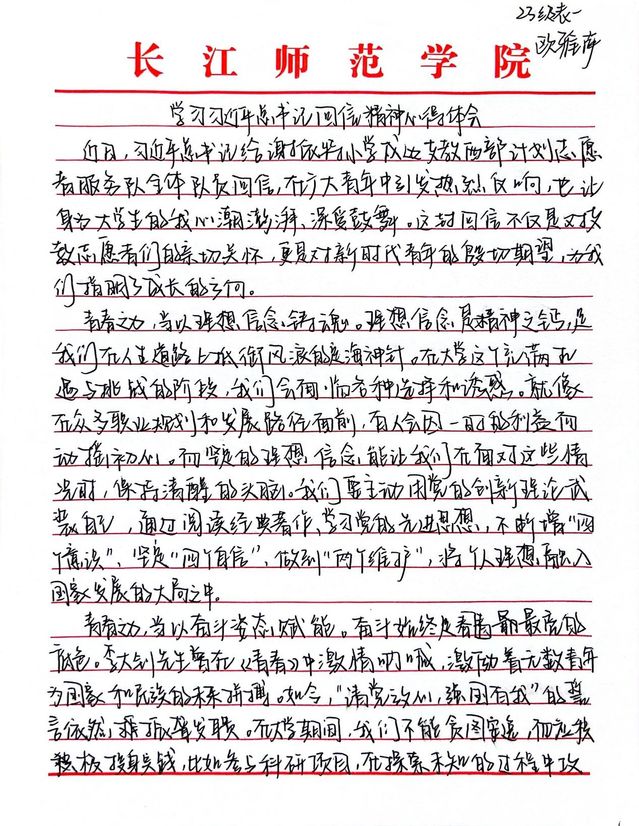 23级表一
欧雅
长江师范学院
学习习近平总书记回信精神心得体会
近日,习近平总书记给谢依特小学戍边支教西部计划志愿
者服务队全体队员回信,在广大青年中引发热烈反响,也让
身为大学生的我心潮澎湃、深受鼓舞。这封回信不仅是对支
教志愿者们的亲切关怀,更是对新时代青年的殷切期望,为我
们指明了成长的方向。
青春之力,当以理想信念铸魂。理想信念是精神之钙,是
我们在人生道路上抵御风浪的定海神针。在大学这个充满机
遇与挑战的阶段,我们会面临各种选择和诱惑。就像
在众多职业规划和发展路径面前,有人会因一时的利益而
动摇初心。而坚定的理想信念能让我们在面对这些情
况时,保持清醒的头脑。我们要主动用党的创新理论武
装自己,通过阅读经典著作、学习党的先进思想,不断增“四
个意识”、坚定“四个自信”、做到“两个维护”,将个人理想融入
国家发展的大局之中。
青春之力,当以奋斗姿态赋能。奋斗始终是青春最亮的
底色。李大钊先生曾在《青春》中激情呐喊,激励着无数青年
为国家和民族的未来拼搏。如今,“请党放心,强国有我”的誓
言依然振聋发聩。在大学期间,我们不能贪图安逸,而应积
极投身实践,比如参与科研项目,在探索未知的过程中攻